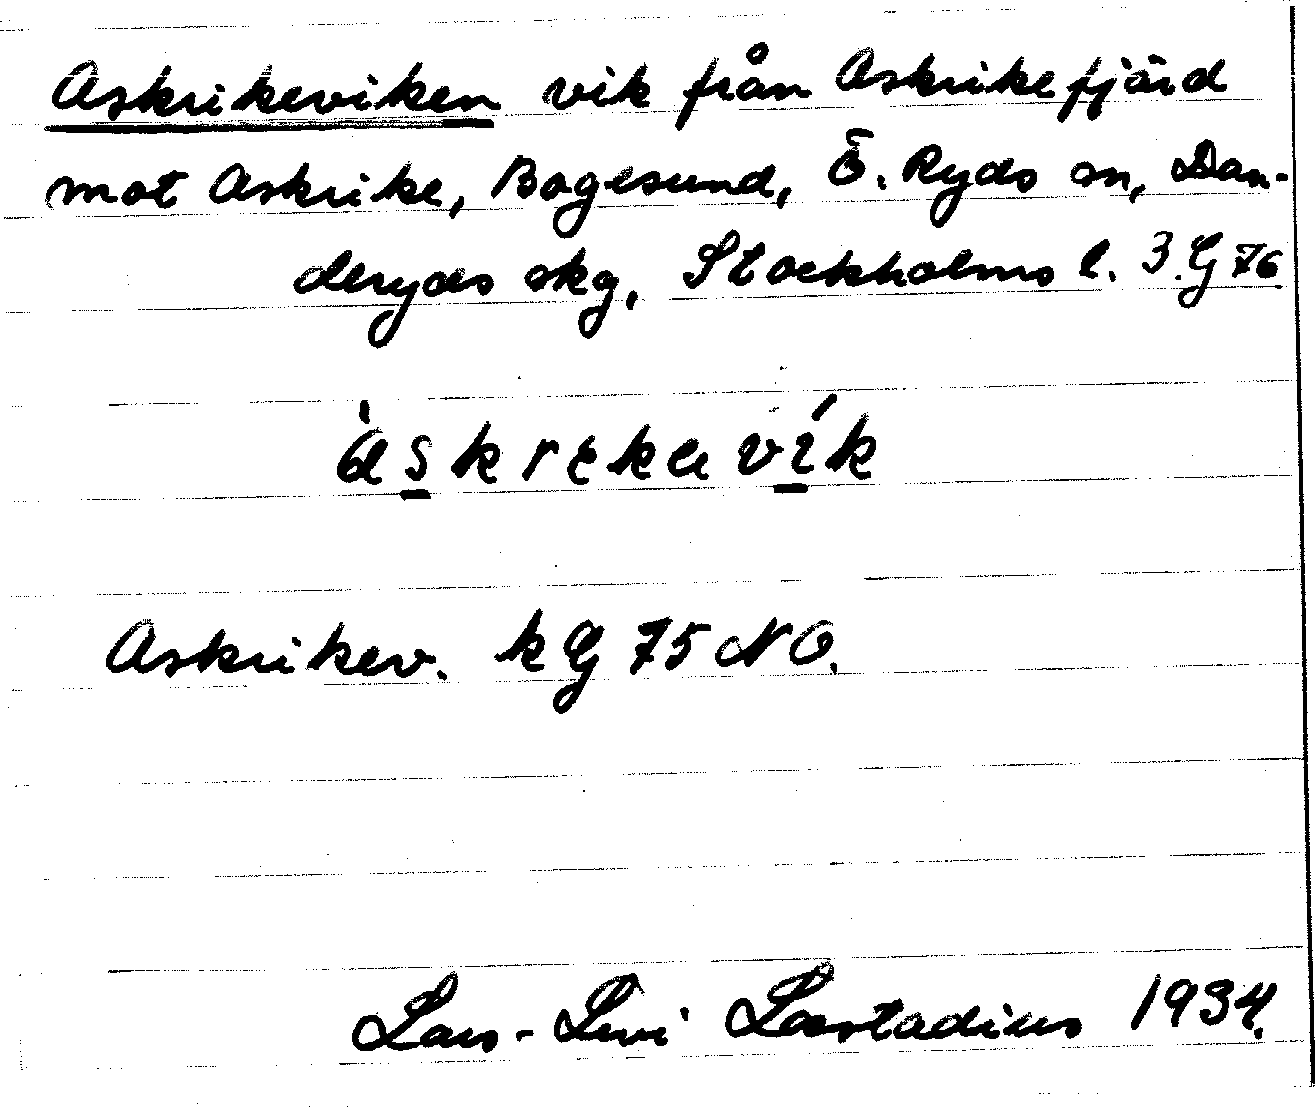 Askrikeviken vik från Askrikefjärd
mot Askrike, Bogesund, Ö. Ryds sn, Dan-
deryds skg, Stockholms l. 3.G 76
àskrıkavík
Askrikev. kG 75 NO.
Lars-Levi Læstadius 1934.